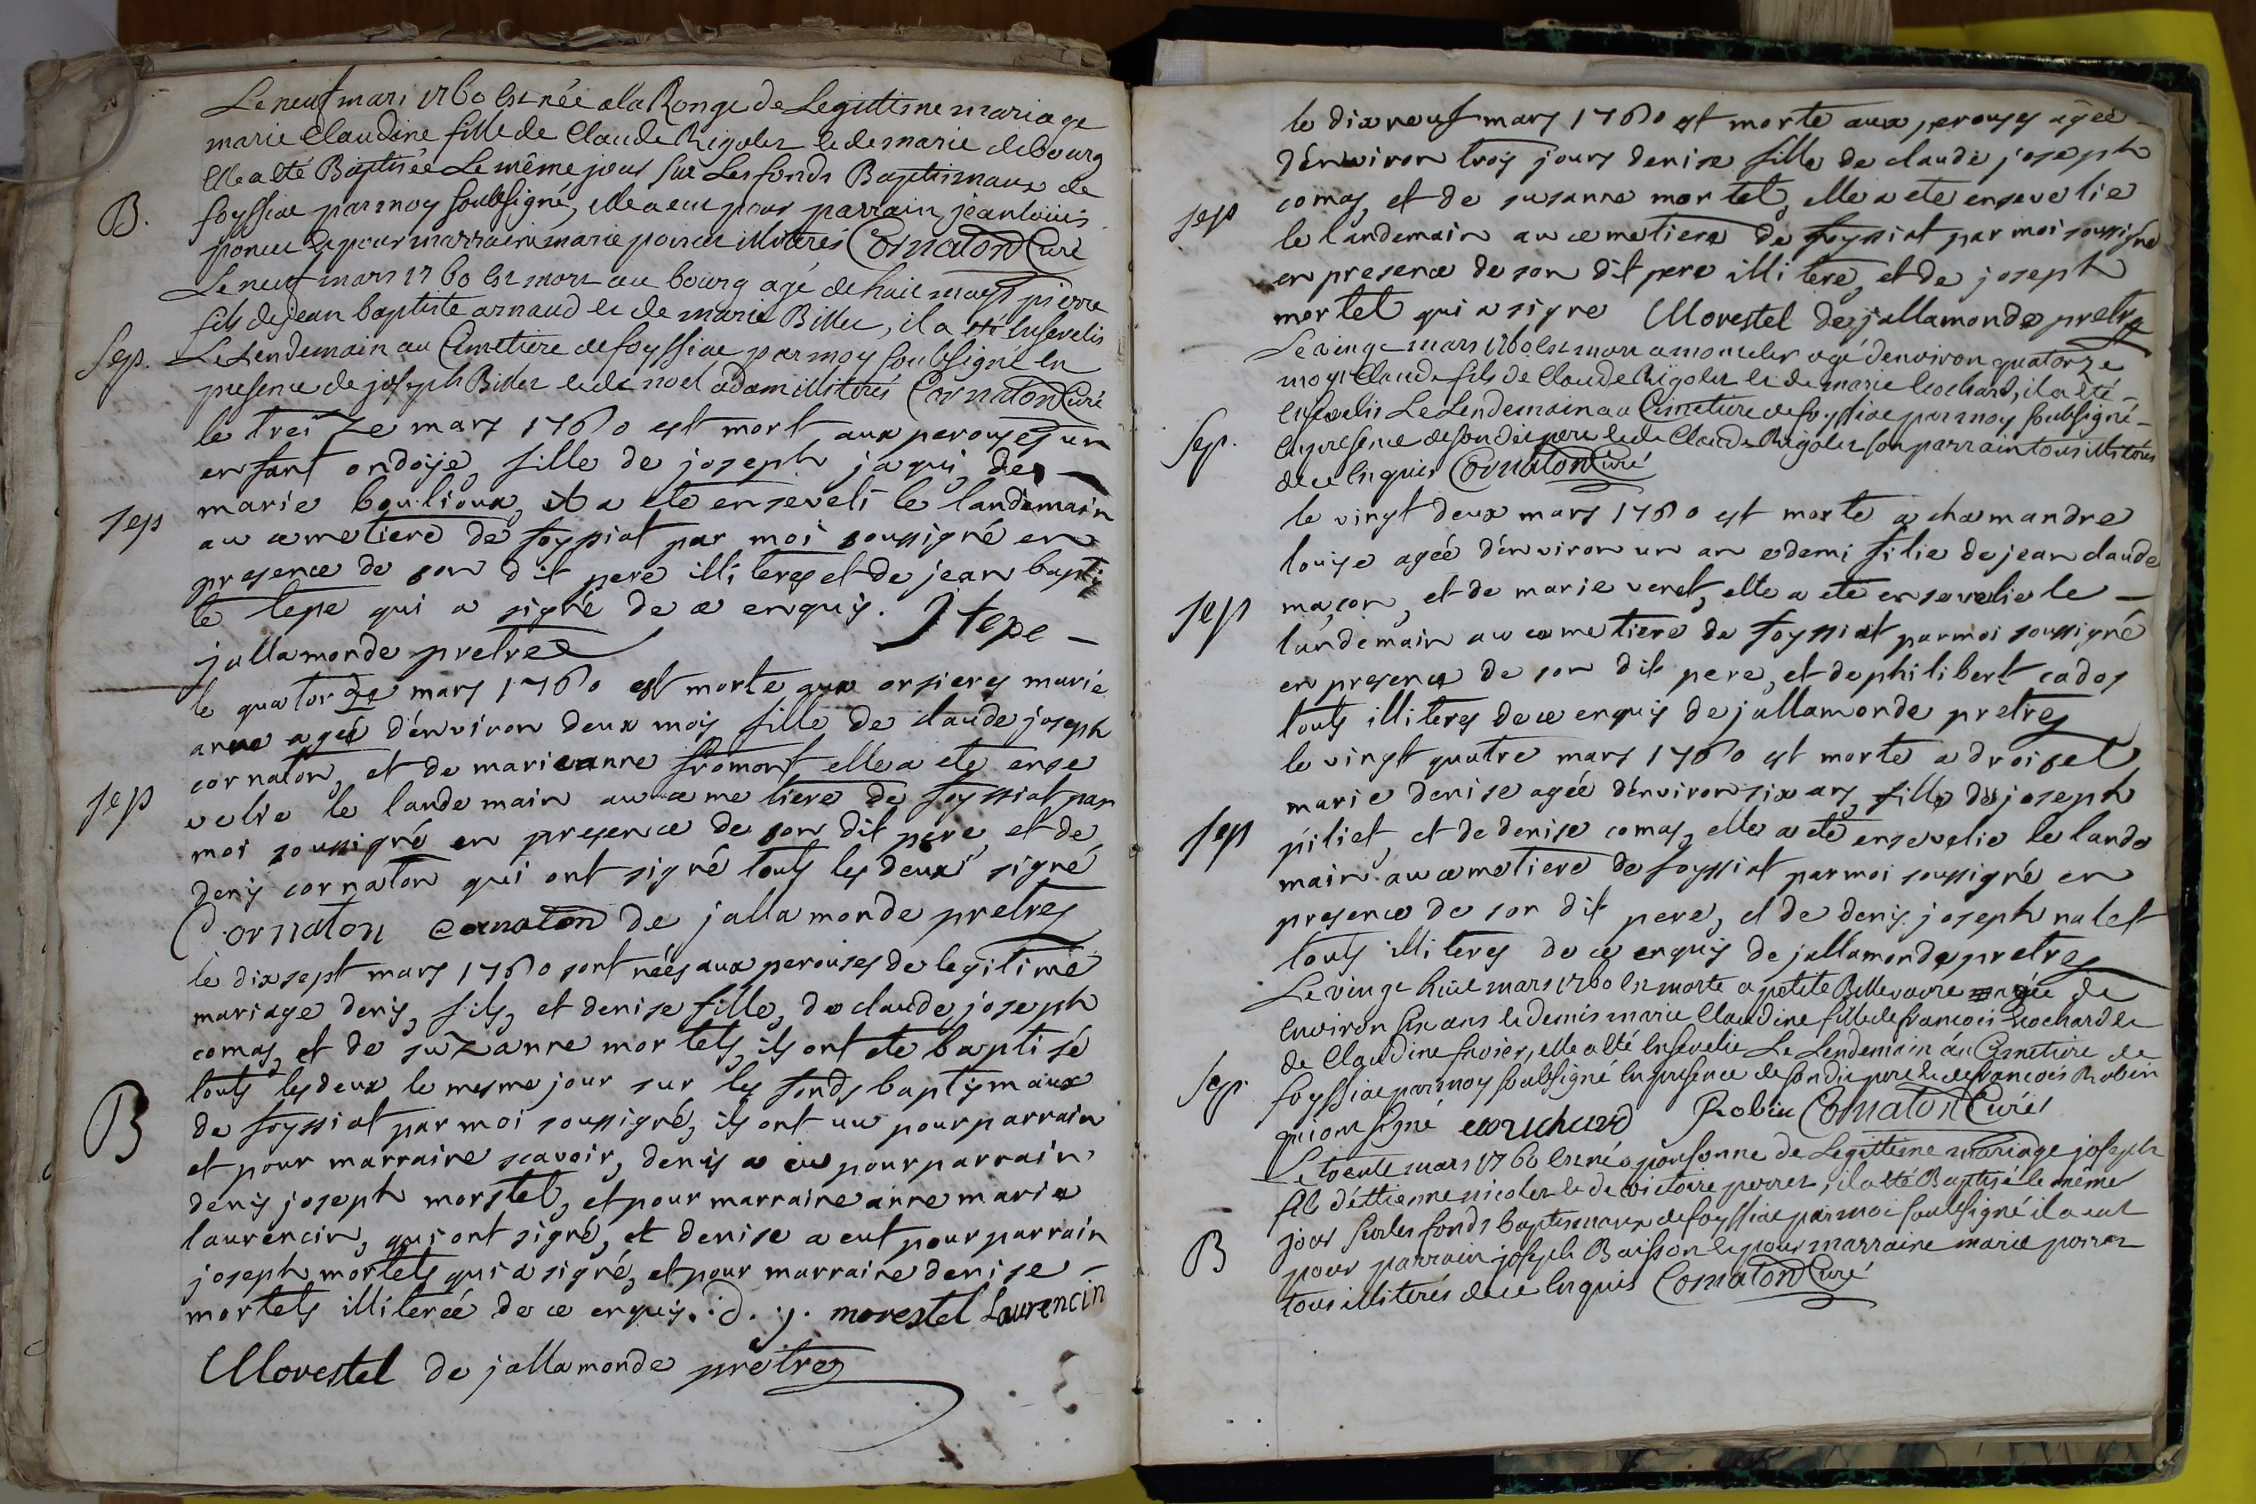 Le neuf mars 1760 est née a la Ronge de Legittime mariage
marie Claudine fille de Claude Rigolet et de marie debourg
Elle a été Baptisée Le même jour sur Les fonds Baptismaux de
B. foyssiac par moy soubsigné, elle a eu pour parrain jean louis
poncet et pour marraine marie poncet illitérés Cornaton Curé
Le neuf mars 1760 est mort au bourg agé de huit moys pierre
fils de jean baptiste arnaud et de marie Billet, il a été Ensevelis
Sep. Le Lendemain au Cimetiere de foyssiac par moy soubsigné en
presence de joseph Billet et de noel adam illitérés Cornaton Curé
le treize mars 1760 est mort aux perouses un
enfant ondoÿe, fille de joseph jaqui, de
marie boulioux, il a ete enseveli le landemain
Sep au cemetiere de foyssiat par moi soussigné en
presence de son dit pere illiteres et de jean baptis
te tepe qui a signé de ce enquis. J tepe
jallamonde pretre
le quatorze mars 1760 est morte aux orsieres marie
anne agée d'environ deux mois fille de claude joseph
cornaton, et de marieanne fromont elle a ete ense
Sep velie le landemain au cemetiere de foyssiat par
moi soussigné en presence de son dit pere et de
denis cornaton qui ont signé touts les deux signé
Cornaton cornaton de jallamonde pretres
le dixsept mars 1760 sont nées aux perouses de legitime
mariage denis, fils, et denise fille, de claude joseph
comas, et de suzanne mortels, ils ont ete baptisé
touts les deux le mesme jour sur les fonds baptismaux
B de foyssiat par moi soussigné, ils ont uu pour parrain
et pour marraine scavoir, denis a eu pour parrain
denis joseph morstel, et pour marraine anne marie
laurencin, qui ont signé, et denise a eut pour parrain
joseph mortels qui a signé, et pour marraine denise
mortels illiterée de ce enquis. d. j. morestel Laurencin
Morestel de jallamonde pretres
le dixneuf mars 1760 est morte aux perouses agée
d'environ trois jours denise fille de claude joseph
Sep comas, et de susanne mortel, elle a ete ensevelie
le landemain au cemetiere de foyssiat par moi soussigné
en presence de son dit pere illitere, et de joseph
mortel qui a signe Morestel de jallamonde pretre
Le vingt mars 1760 est mort a moncelet agé denviron quatorze
moys Claude fils de Claude Rigolet et de marie Cochard, il a été
Ensevelis Le Lendemain au Cimetiere de foyssiac par moy soubsigné
Sep. En presence de son dit pere et de Claude Rigolet son parrain tous illitérés
de ce Enquis Cornaton Curé
le vingt deux mars 1760 est morte a chamandre
louise agée d'environ un an edemi fille de jean claude
Sep maçon, et de marie veret, elle a ete ensevelie le
landemain au cemetiere de foyssiat par moi soussigné
en presence de son dit pere, et de philibert cados
touts illiteres de ce enquis de jallamonde pretres
le vingt quatre mars 1760 est morte a droiset
marie denise agée d'environ six ans, fille de joseph
Sep piliet, et de denise comas, elle a ete ensevelie le lande
main au cemetiere de foyssiat par moi soussigné en
presence de son dit pere, et de denis joseph nalet
touts illiteres de ce enquis de jallamonde pretres
Le vingt huit mars 1760 est morte a petite Bellevavre agée de
Environ six ans et demis marie Claudine fille de francois Cochard et
de Claudine favier, elle a été Ensevelie Le Lendemain au Cimetiere de
Sep. foyssiac par moy soubsigné En presence de son dit pere et de francois Robin
qui ont signé couchard Robin Cornaton Curé
Le trente mars 1760 est né a ponsonne de Legittime mariage joseph
fils d'ettienne nicolet et de victoire perret, il a été Baptisé le même
B jour sur les fonds baptismaux de foyssiac par moi soubsigné il a eut
pour parrain joseph Buisson et pour marraine marie perret
tous illitérés de ce Enquis Cornaton Curé